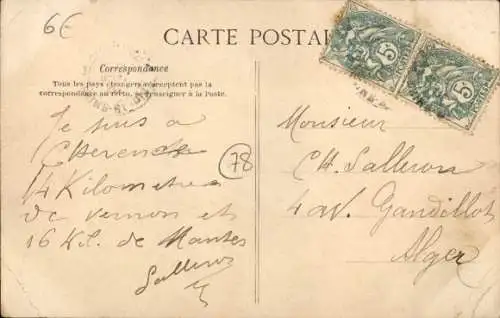 6€
CARTE POSTALE
Correspondance
Tous les pays étrangers n'acceptent pas la
correspondance au recto. Se renseigner à la Poste.
Je suis a
14 Kilometres
de vernon et
16 Kil. de Mantes
Salleron
78
5
5
Monsieur
CH. Salleron
4 av. Gandillot
Alger